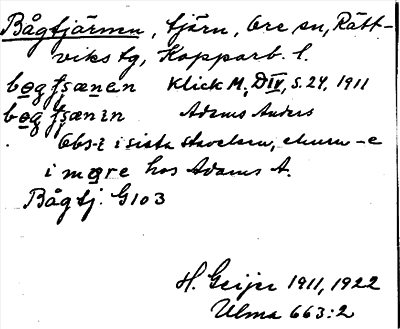 Bågtjärnen, tjärn, Ore sn, Rätt-
viks tg, Kopparb. l.
bogʃsænen Klick M, DIV, s. 24, 1911
bogʃsænɪn Adams Anders
Obs-ɪ i sista stavelsen, ehuru -e
i møre hos Adams A.
Bågtj. G103
H. Geijer 1911, 1922
Ulma 663:2